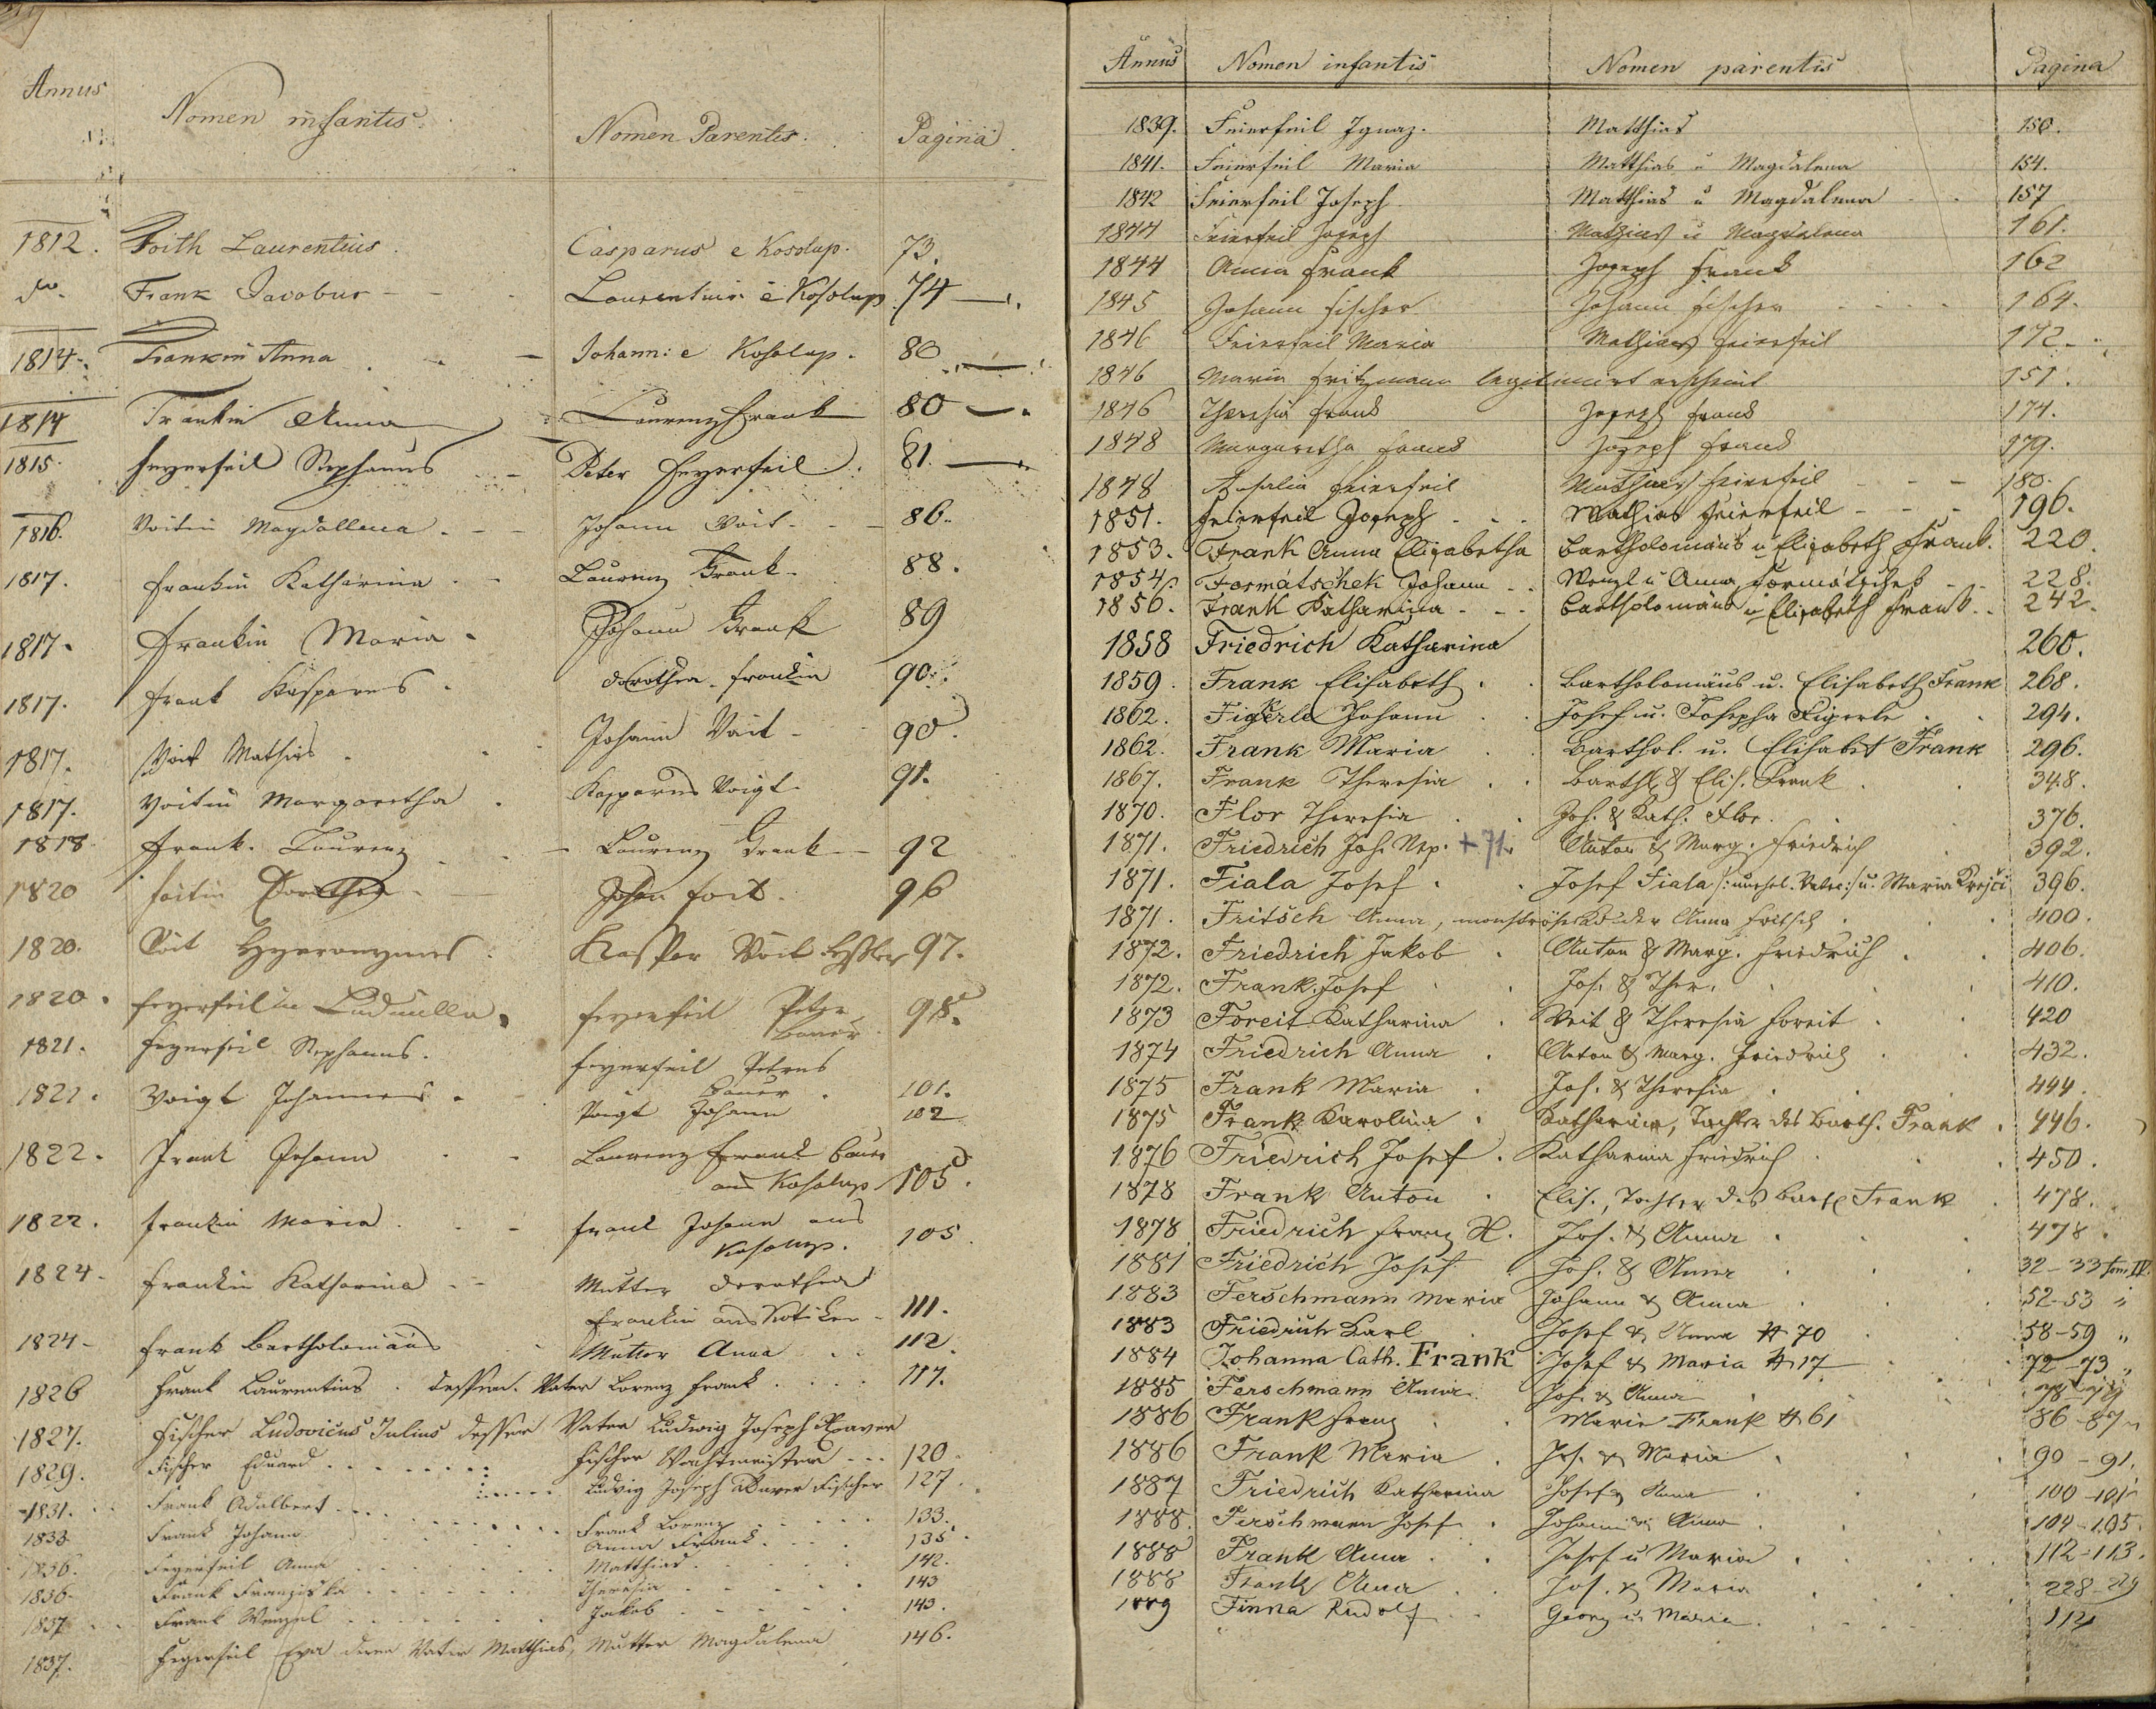 Annus Nomen infantis. Nomen Parentis. Pagina.
1812. Foith Laurentius. Casparus e Kosolup. 73.
do. Frank Jacobus Laurentius e Kosolup 74
1814. Frankin Anna Johann: e Kosolup. 80
1814 Frankin Anna Laurenz Frank 80
1815. Feyerfeil Stephanus Peter Feyerfeil. 81.
1816. Voitin Magdallena Johann Voit 86.
1817. Frankin Katharina Laurenz Frank 88.
1817. Frankin Maria Johann Frank 89
1817. Frank Kasparus Dorothea Frankin 90.
1817. Voit Mathias Johann Voit 90.
1817. Voitin Margaretha Kasparus Voigt 91.
1818 Frank Laurenz Laurenz Frank 92
1820 Foitin Dorothea Johan Foit. 96
1820. Voit Hyeronymus Kaspar Voit 97.
1820. Feyerfeilin Ludmilla Feyerfeil Peter Bauer 98.
1821. Feyerfeil Stephanus. Feyerfeil Petrus Bauer 101.
1821. Voigt Johannes Voigt Johann 102
1822. Frank Johann Laurenz Frank Bauer
aus Kosolup 105.
1822. Frankin Maria Frank Johann aus
Kosolup. 105
1824. Frankin Katharina Mutter Dorothea
Frankin aus 111.
1824 Frank Bartholomäus Mutter Anna 112.
1826 Frank Laurentius. dessen Vater Lorenz Frank 117.
1827. Fischer Ludovicus Julius dessen Vater Ludwig Joseph Xaver
Fischer Wachtmeister 120
1829. Fischer Eduard Ludwig Joseph Xaver Fischer 127
1831. Frank Adalbert Frank Lorenz 133.
1833. Frank Johann Anna Frank 135
1836. Feyerfeil Anna Matthias 142.
1836. Frank Franziska Theresia 143
1837 Frank Wenzel Jakob 143.
1837. Feyerfeil Eva deren Vater Matthias, Mutter Magdalena 146.
Annus Nomen infantis Nomen parentis Pagina
1839. Feierfeil Ignaz. Matthias 150.
1841. Feierfeil Maria Matthias u Magdalena 154.
1842 Feierfeil Joseph Matthias u Magdalena 157
1844 Feierfeil Joseph Mathias u Magdalena 161.
1844 Anna Frank Joseph Frank 162
1845 Johann Fischer Johann Fischer 164.
1846 Feierfeil Maria Mathias Feierfeil 172
1846 Maria Fritzmann legitimirt erscheint 151.
1846 Theresia Frank Joseph Frank 174.
1848 Margaretha Frank Joseph Frank 179.
1848 Rosalia Feierfeil Mathias Feierfeil 180.
1851. Feierfeil Joseph Mathias Feierfeil 196.
1853. Frank Anna Elisabetha Bartholomäus u Elisabeth Frank. 220.
1854. Formatschek Johann Wenzl u Anna Formatschek 228.
1856. Frank Katharina Bartholomäus u Elisabeth Frank 242.
1858 Friedrich Katharina 260.
1859. Frank Elisabeth Bartholomäus u. Elisabeth Frank 268.
1862. Figerle Johann Josef u. Josepha Figerle 294.
1862. Frank Maria Barthol. u. Elisabet Frank 296.
1867. Frank Theresia Barth. & Elis. Frank 348.
1870. Flor Theresia Joh. & Kath. Flor. 376.
1871. Friedrich Joh. Nep. + 71. Anton & Marg. Friedrich 392.
1871. Fiala Josef Josef Fiala /: unehel. Vater :/ u. Maria Krejči 396.
1871. Fritsch Anna, der Anna Fritsch 400.
1872. Friedrich Jakob Anton & Marg. Friedrich 406.
1872. Frank Josef Jos. & Ther. 410.
1873 Foreit Katharina Veit & Theresia Foreit 420
1874 Friedrich Anna Anton & Marg. Friedrich 432.
1875 Frank Maria Jos. & Theresia 444.
1875 Frank Karolina Katharina, Tochter des Barth. Frank 446.
1876 Friedrich Josef Katharina Friedrich 450.
1878 Frank Anton Elis., Tochter des Barth. Frank 478.
1878 Friedrich Franz X. Jos. & Anna 478.
1881 Friedrich Josef Jos. & Anna 32-33 tom. IV.
1883 Ferschmann Maria Johann & Anna 52-53 "
1883 Friedrich Karl Josef & Anna # 70 58-59 "
1884 Johanna Cath. Frank Josef & Maria # 17 72-73 "
1885 Ferschmann Anna Joh. & Anna 78-79
1886 Frank Franz Maria Frank # 61 86-87 "
1886 Frank Maria Jos. & Maria 90-91.
1887 Friedrich Katharina Josef & Anna 100-101
1888. Ferschmann Josef Johann & Anna 104-105.
1888 Frank Anna Josef u Maria 112-113.
1888 Frank Anna Jos. & Maria 228-229
1889 Finna Rudolf Georg u. Maria 114